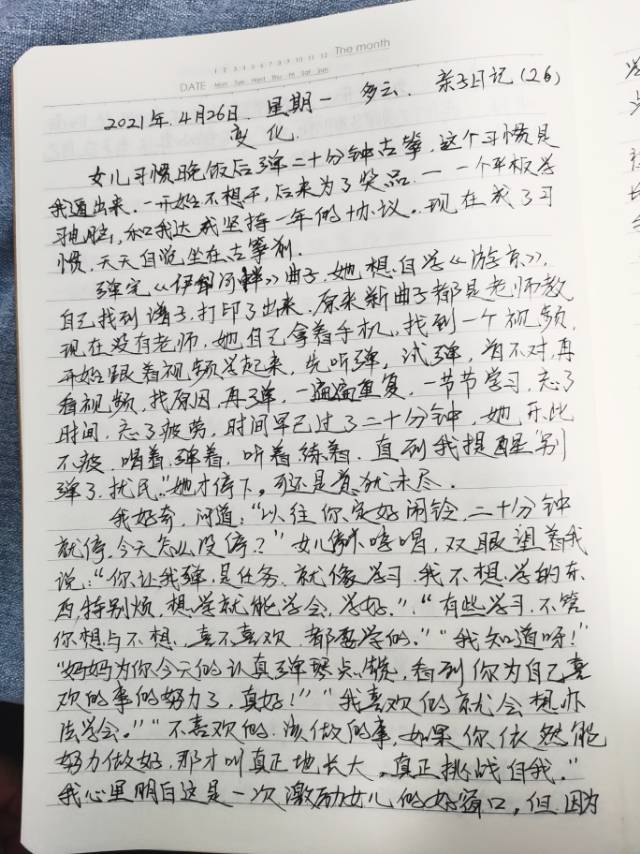 1 2 3 4 5 6 7 8 9 10 11 12 The month
DATE Mon Tue Wed Thu Fri Sat Sun
2021年4月26日.星期一 多云. 亲子日记(26)
变化.
女儿习惯晚饭后弹二十分钟古筝,这个习惯是
我逼出来.一开始不想干,后来为了奖品——一个平板学
习电脑,和我达成坚持一年的协议。现在成了习
惯,天天自觉坐在古筝前.
弹完《伊犁河畔》曲子,她想自学《游京》,
自己找到谱子,打印了出来.原来新曲子都是老师教
现在没有老师,她自己拿着手机,找到一个视频,
开始跟着视频学起来,先听弹,试弹,音不对,再
看视频,找原因,再弹,一遍遍重复,一节节学习,忘了
时间,忘了疲劳,时间早已过了二十分钟,她乐此
不疲,唱着,弹着,听着练着.直到我提醒"别
弹了,扰民."她才停下。可还是意犹未尽.
我好奇,问道:"以往你定好闹铃,二十分钟
就停,今天怎么没停?"女儿哼唱,双眼望着我
说:"你让我弹,是任务,就像学习,我不想学的东
西,特别烦,想学就能学会,学好.","有些学习,不管
你想与不想,喜不喜欢,都要学的.""我知道呀!"
"妈妈为你今天的认真弹琴点赞,看到你为自己喜
欢的事的努力了,真好!""我喜欢的就会想办
法学会。""不喜欢的,该做的事,如果你依然能
努力做好,那才叫真正地长大,真正挑战自我."
我心里明白这是一次激励女儿的好窗口,但因为